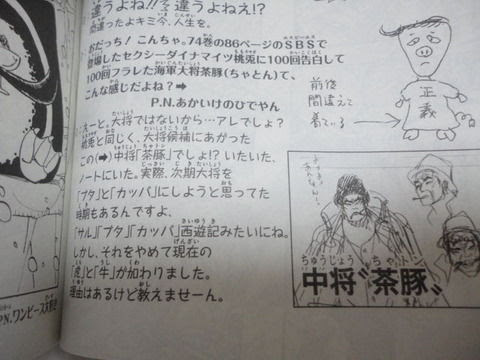 違うよね!!って違うよねえ!?
間違ったよキミ今、人生を。
おだっち! こんちゃ。74巻の86ページのSBSで
登場したセクシーダイナマイツ桃兎に100回告白して
100回フラレた海軍大将茶豚(ちゃとん)て、
こんな感じだよね?➡
P.N.あかいけのひでやん
えーと。大将ではないから…アレでしょ?
桃兎と同じく、大将候補にあがった
この(➡)中将「茶豚」でしょ!? いたいた、
ノートにいた。実際、次期大将を
「ブタ」と「カッパ」にしようと思ってた
時期もあるんですよ、
「サル」「ブタ」「カッパ」西遊記みたいにね。
しかし、それをやめて現在の
「虎」と「牛」が加わりました。
理由はあるけど教えませーん。
正義
前後
間違えて
着ている
ちゅうじょう ちゃトン
中将〝茶豚〟
P.N.ワンピース大好き